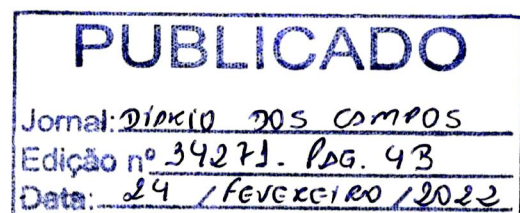 PUBLICADO
Jornal: DIÁRIO DOS CAMPOS
Edição nº 34271. PAG. 4B
Data: 24 / FEVEREIRO / 2022